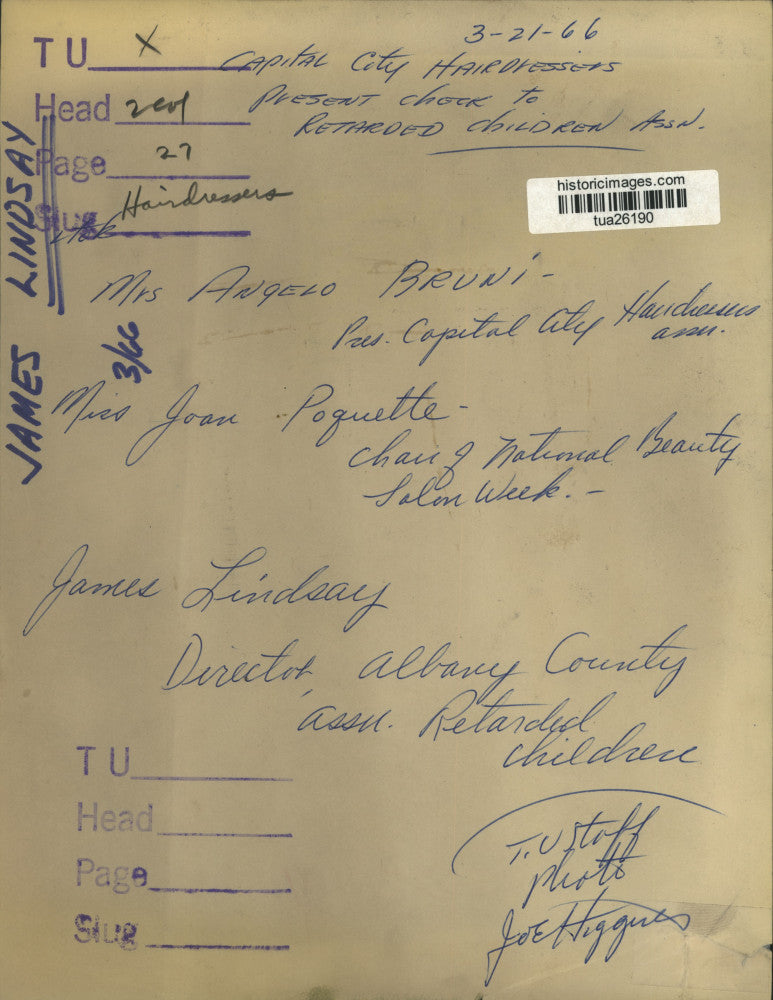 3-21-66
TU X
CAPITAL City HAIRDRESSERS
Head 2 col
PRESENT check to
RETARDED CHILDREN ASSN.
Page 27
Slug Hairdressers
historicimages.com
tua26190
JAMES LINDSAY
3/66
Mrs ANGELO BRUNI -
Pres. Capital City Hairdressers
assn.
Miss Joan Poquette -
Chair of National Beauty
Salon Week. -
James Lindsay
Director Albany County
assn. Retarded
Children
TU
Head
Page
Slug
T.U Staff
Photo
Joe Higgins